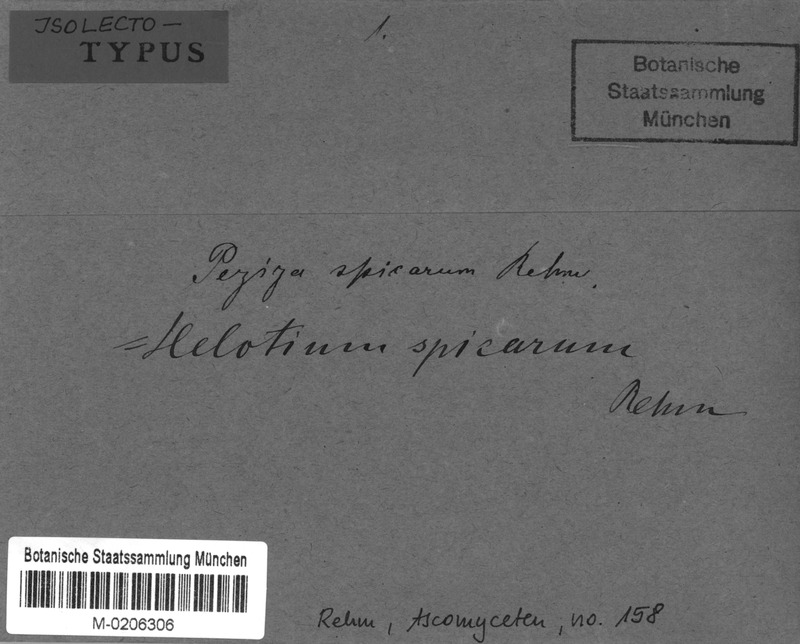 ISOLECTO-
TYPUS
1.
Botanische
Staatssammlung
München
Peziza spicarum Rehm.
=Helotium spicarum
Rehm
Botanische Staatssammlung München
M-0206306
Rehm, Ascomyceten, no. 158